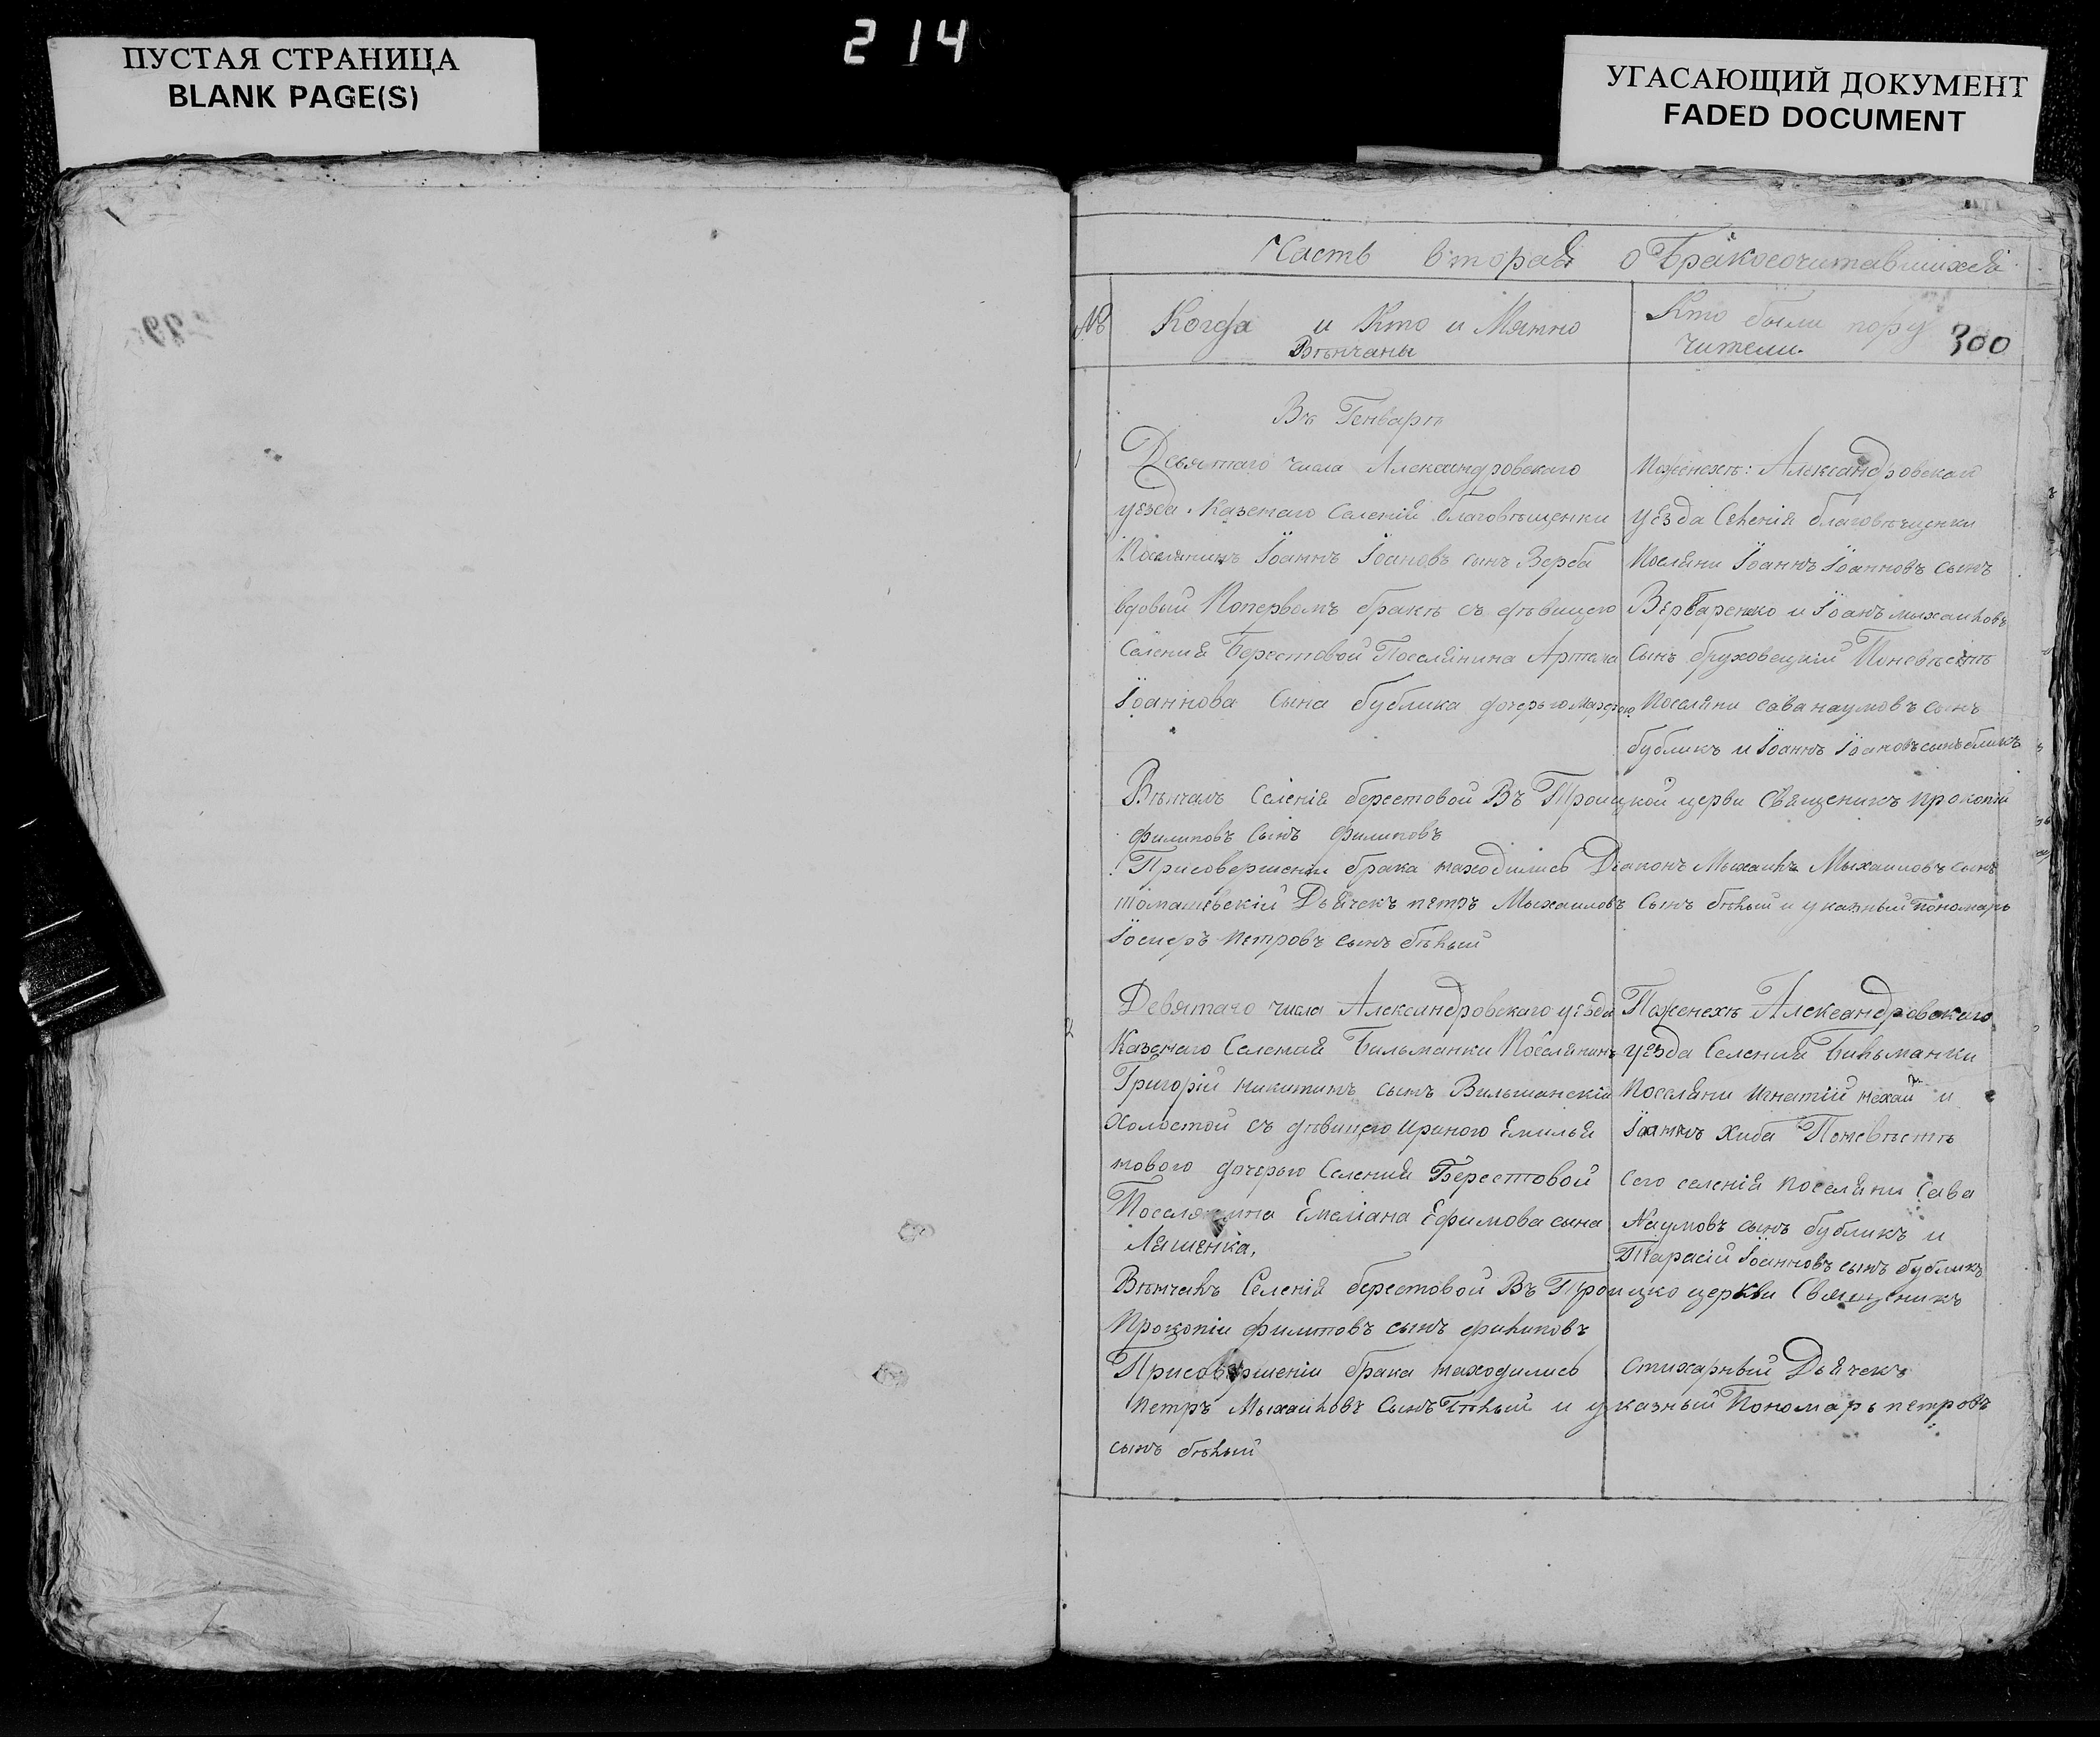 ПУСТАЯ СТРАНИЦА
BLANK PAGE(S)
214
УГАСАЮЩИЙ ДОКУМЕНТ
FADED DOCUMENT
Часть вторая о Бракосочитавшихся
№ Когда и Кто и Мянно
Вѣнчаны
Кто были пору
чители.
300
Въ Генварѣ
1
Девятаго числа Александровского
уѣзда. Казенаго Селенія благовѣщенки
Поселянинъ Іоаннъ Іоановъ сынъ Верба
вдовый Попервомъ бракѣ съ дѣвицею
Селенія Берестовой Поселянина Артема
Іоаннова сына бублика дочерью
Поженехѣ: Александровскаи
уѣзда Селенія благовѣщенки
Поселяни Іоаннъ Іоанновъ сынъ
Вербаренко и Іоанъ михаиловъ
Сынъ бруховецкій Поневѣстѣ
Поселяни сава наумовъ сынъ
бубликъ и Іоаннъ Іоановъ сынъ бликъ
Вѣнчалъ Селенія берестовой Въ Троицкой церви Священикъ прокопій
филиповъ Сынъ филиповъ
Присовершеніи брака находились Діаконъ Мыхаилъ Мыхаиловъ сынъ
томашевскій Дьячекъ петръ Мыхаиловъ Сынъ бѣлый и указный пономарь
Іосифъ петровъ сынъ бѣлый
2
Девятаго числа Александровскаго уѣзда
Казенаго Селения Бильманки Поселянинъ
Григорій никитинъ сынъ Вильшанскій
Холостой съ дѣвицею Ириною Емилья
новою дочерью Селения Берестовой
Поселянина Емеліана Ефимова сына
Ляшенка,
Поженехѣ Александровскаго
уѣзда Селения Бильманки
Поселяни Игнатій нехай и
Іоаннъ Хиба Поневѣстѣ
Сего селенія поселяни Сава
Наумовъ сынъ бубликъ и
Тарасій Іоанновъ сынъ бубликъ
Вѣнчалъ Селенія берестовой Въ Троицко церкви Священикъ
Прокопіи филиповъ сынъ филиповъ
Присовершеніи брака находились Стихарный Дьячекъ
Петръ Мыхаиловъ Сынъ Бѣлый и указный Пономарь петровъ
сынъ бѣлый